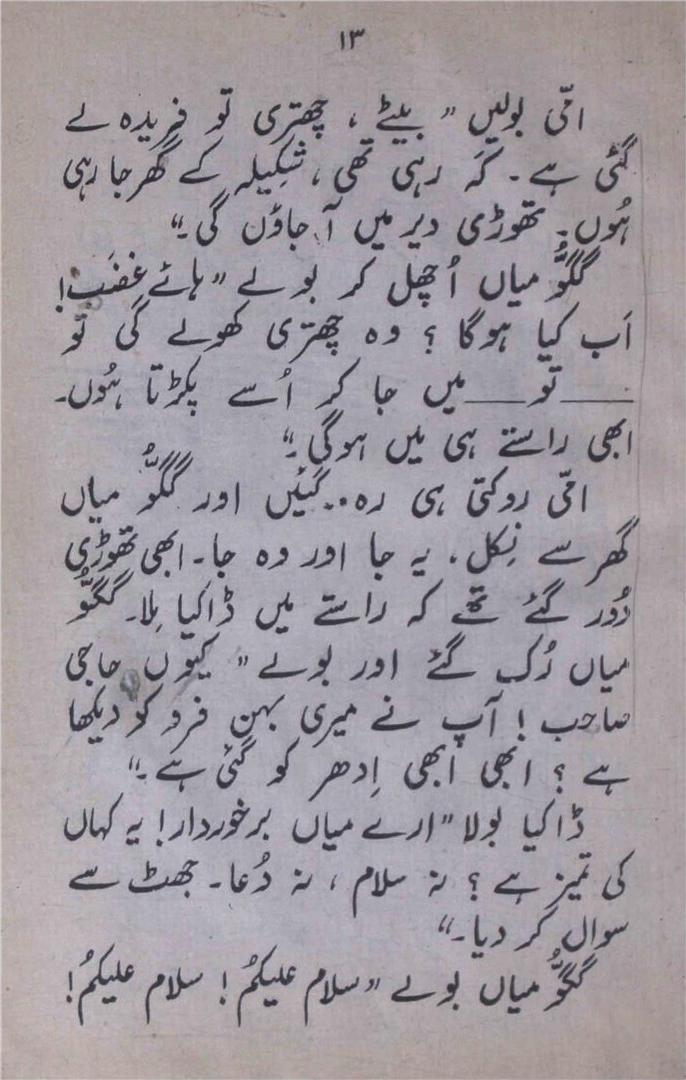 ۱۳
امّی بولیں ” بیٹے ، چھتری تو فریدہ لے
گئی ہے ۔ کَہ رہی تھی ، شکِیلہ کے گھر جا رہی
ہُوں ۔ تھوڑی دیر میں آ جاؤں گی ۔“
گگُّو میاں اُچھل کر بولے ” ہائے غِضَب !
اَب کیا ہوگا ؟ وہ چھتری کھولے گی تو
——تو——میں جا کر اُسے پکڑتا ہُوں ۔
ابھی راستے ہی میں ہوگی ۔“
امّی روکتی ہی رہ .. گئیں اور گگُّو میاں
گھر سے نِکل ، یہ جا اور وہ جا ۔ ابھی تھوڑی
دُور گئے تھے کہ راستے میں ڈاکیا مِلا ۔ گگُّو
میاں رُک گئے اور بولے ” کیوں حاجی
صاحب ! آپ نے میری بہن فرو کو دیکھا
ہے ؟ ابھی ابھی اِدھر کو گئی ہے ۔“
ڈاکیا بولا ” ارے میاں برخوردار ! یہ کہاں
کی تمیز ہے ؟ نہ سلام ، نہ دُعا ۔ جھٹ سے
سوال کر دیا ۔“
گگُّو میاں بولے ” سلام علیکمُ ! سلام علیکمُ !